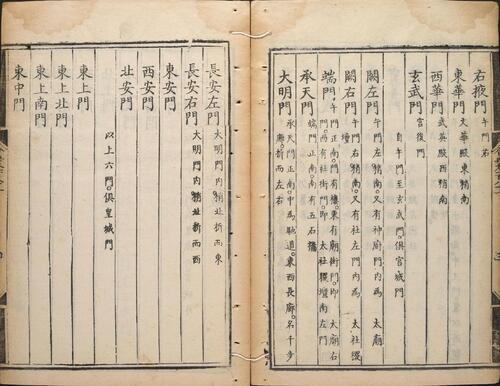 右掖門 午門右
東華門 文華殿東稍南
西華門 武英殿西稍南
玄武門 宮後門
自午門至玄武門俱宮城門
闕左門 午門左稍南又有神廚門內為 太廟
闕右門 午門右稍南又有社左門內為 太社稷
壇
端門 午門正南門有樓東有廟街門即 太廟右
門西有社街門即 太社稷壇南左門
承天門 端門正南南有五石橋
大明門 承天門正南中為馳道東西長廊名千步
廊折而左右
長安左門 大明門內稍北折而東
長安右門 大明門內稍北折而西
東安門
西安門
北安門
以上六門俱皇城門
東上門
東上北門
東上南門
東中門